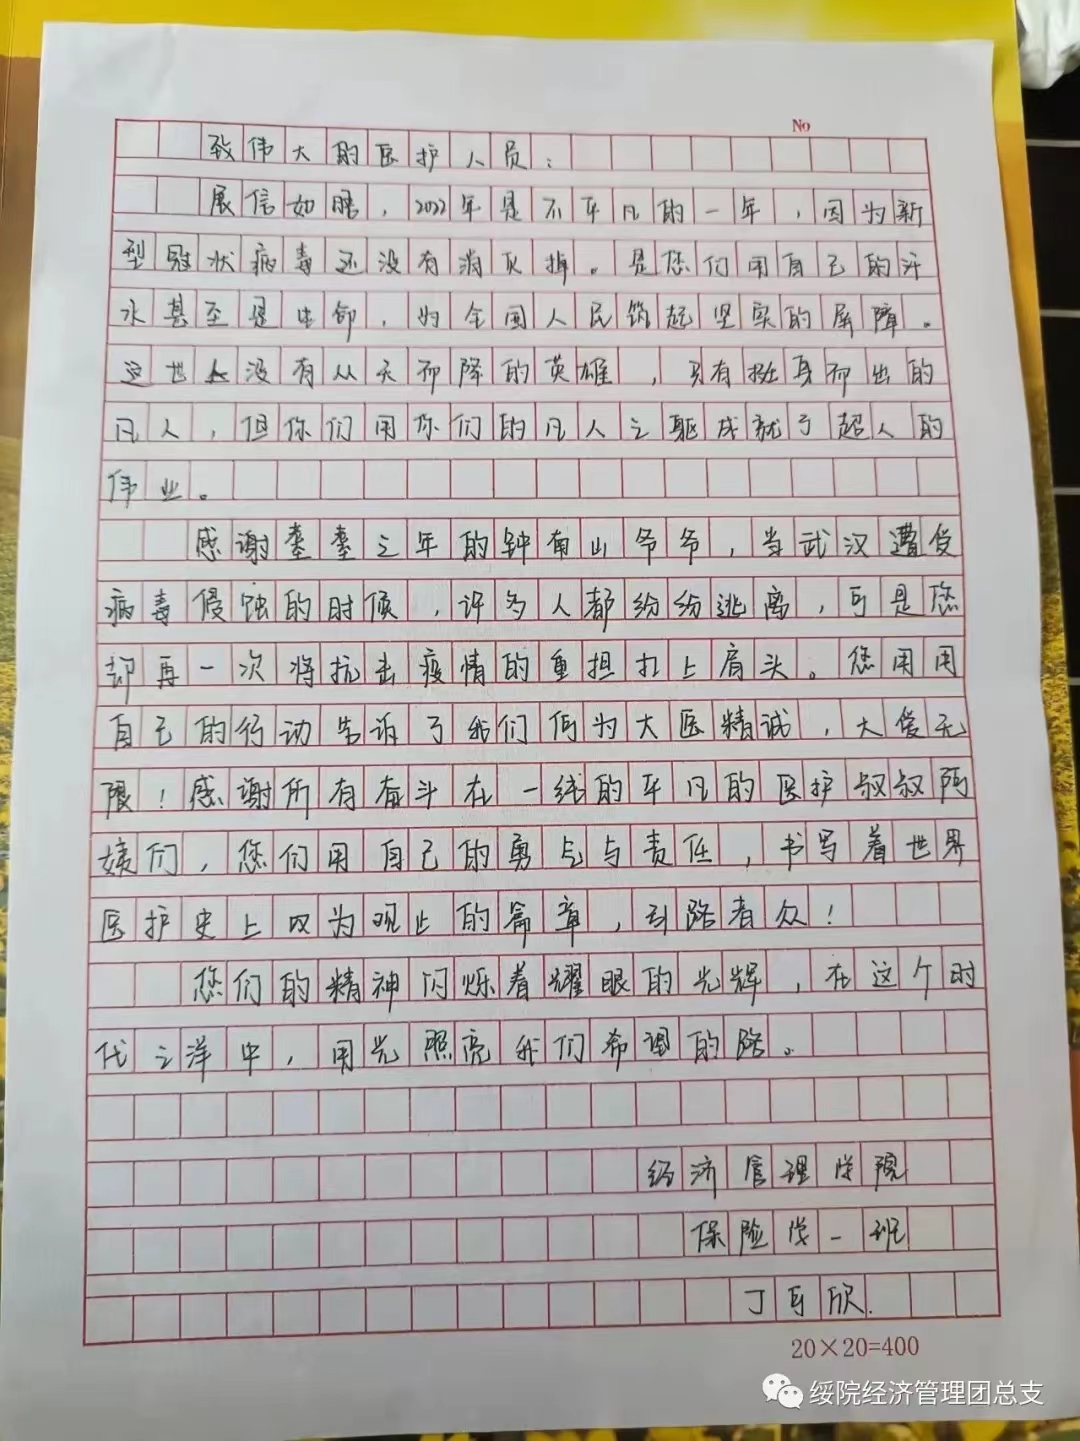 No
致伟大的医护人员：
展信如晤，2022年是不平凡的一年，因为新
型冠状病毒还没有消灭掉。是您们用自己的汗
水甚至是生命，为全国人民筑起坚实的屏障。
这世上没有从天而降的英雄，只有挺身而出的
凡人，但你们用你们的凡人之躯成就了超人的
伟业。
感谢耄耋之年的钟南山爷爷，当武汉遭受
病毒侵蚀的时候，许多人都纷纷逃离，可是您
却再一次将抗击疫情的重担扛上肩头。您用用
自己的行动告诉了我们何为大医精诚，大爱无
限！感谢所有奋斗在一线的平凡的医护叔叔阿
姨们，您们用自己的勇气与责任，书写着世界
医护史上叹为观止的篇章，引路者众！
您们的精神闪烁着耀眼的光辉，在这个时
代之洋中，用光照亮我们希望的路。
经济管理学院
保险学一班
丁欣
20×20=400
绥院经济管理团总支